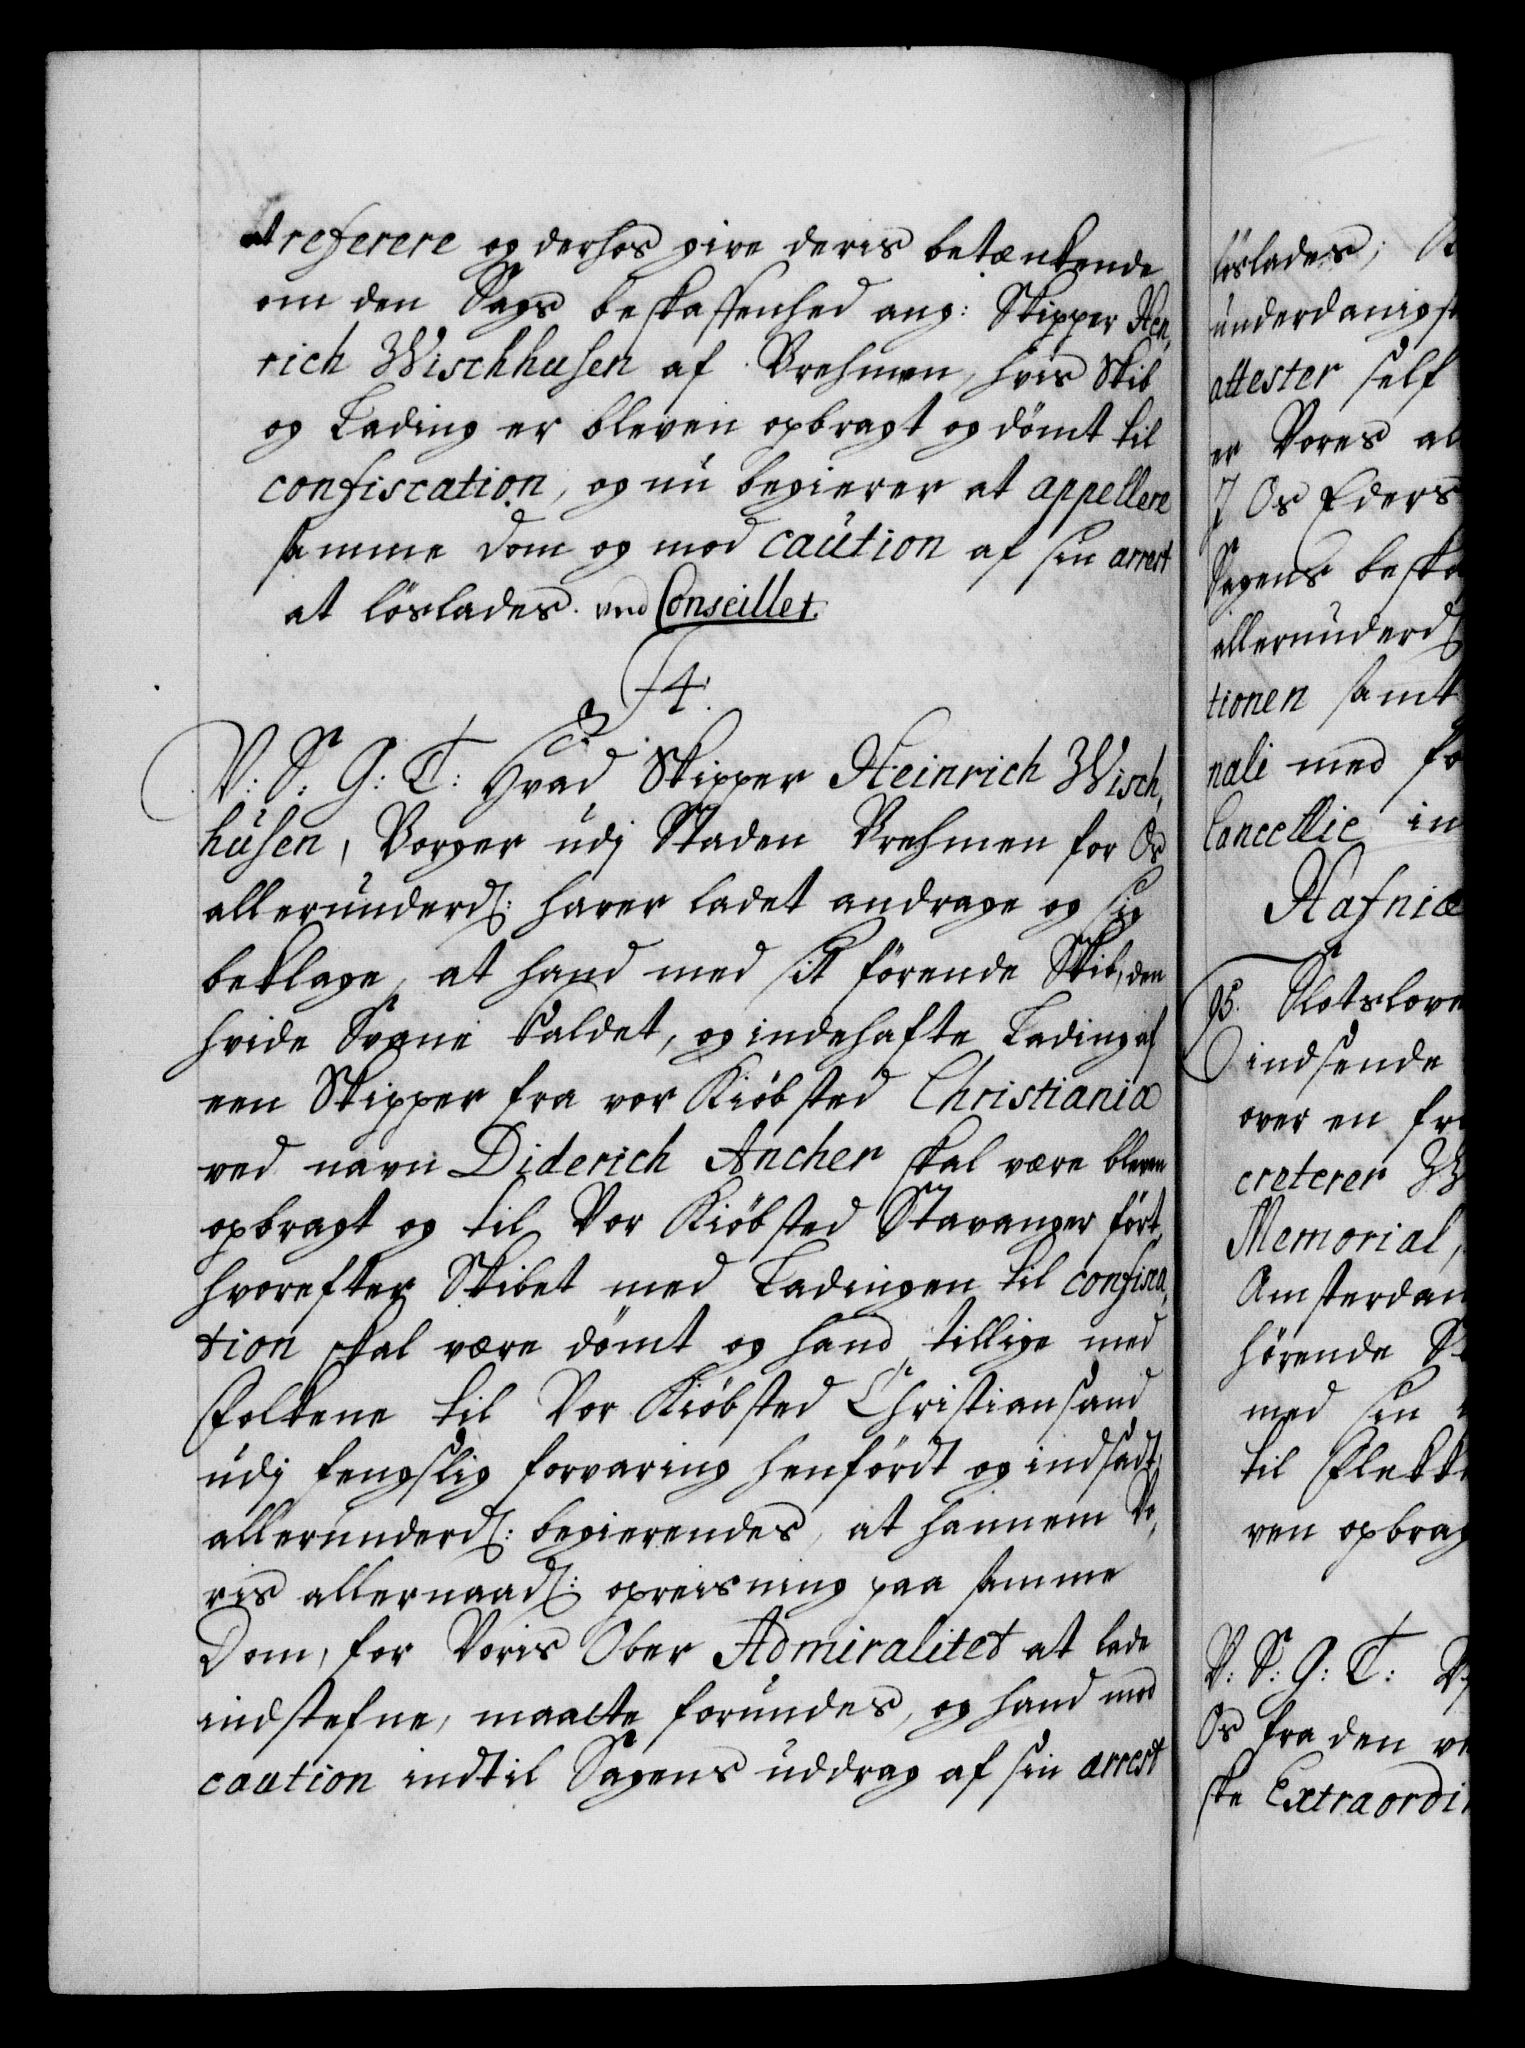 at referere og derhos give deris betænkende
om den Sags beskaffenhed ang: Skipper Hen,
rich Wischhusen af Brehmen, hvis Skib
og Lading er bleven opbragt og dömt til
confiscation, og nu begierer at appellere
samme Dom og mod caution af sin arrest
at löslades. ved Conseillet.
F4.
V: S: G: T: Hvad Skipper Heinrich Wisch,
husen, Borger udj Staden Brehmen for Os
allerunderd: haver ladet andrage og sig
beklage, at hand med sit förende Skib, den
hvide Svane kaldet, og indehafte Lading af
een Skipper fra vor Kiöbsted Christiania
ved navn Diderich Ancher skal være bleven
opbragt og til Vor Kiöbsted Stavanger fört,
hvorefter Skibet med Ladingen til confisca,
tion skal være dömt og hand tillige med
Folkene til Vor Kiöbsted Christiansand
udj fengslig forvaring henfördt og indsadt,
allerunderd: begierendes, at hannem Vo,
ris allernaad: opreisning paa samme
Dom, for Voris Ober Admiralitet at lade
indstefne, maatte forundes, og hand mod
caution indtil Sagens uddrag af sin arrest
löslades;
underdanigst
attester self
er Vores al
J Os Eders
Sagens beska
allerunderd
tionen samt
nali med fo
Cancellie in
Hafniæ
95. Slotslove
indsende
over en fr
creterer W
Memorial,
Amsterdam
hörende S
med sin
til Flekk
ven opbrag
V: S: G: T: V
Os fra den
ske Extraordin